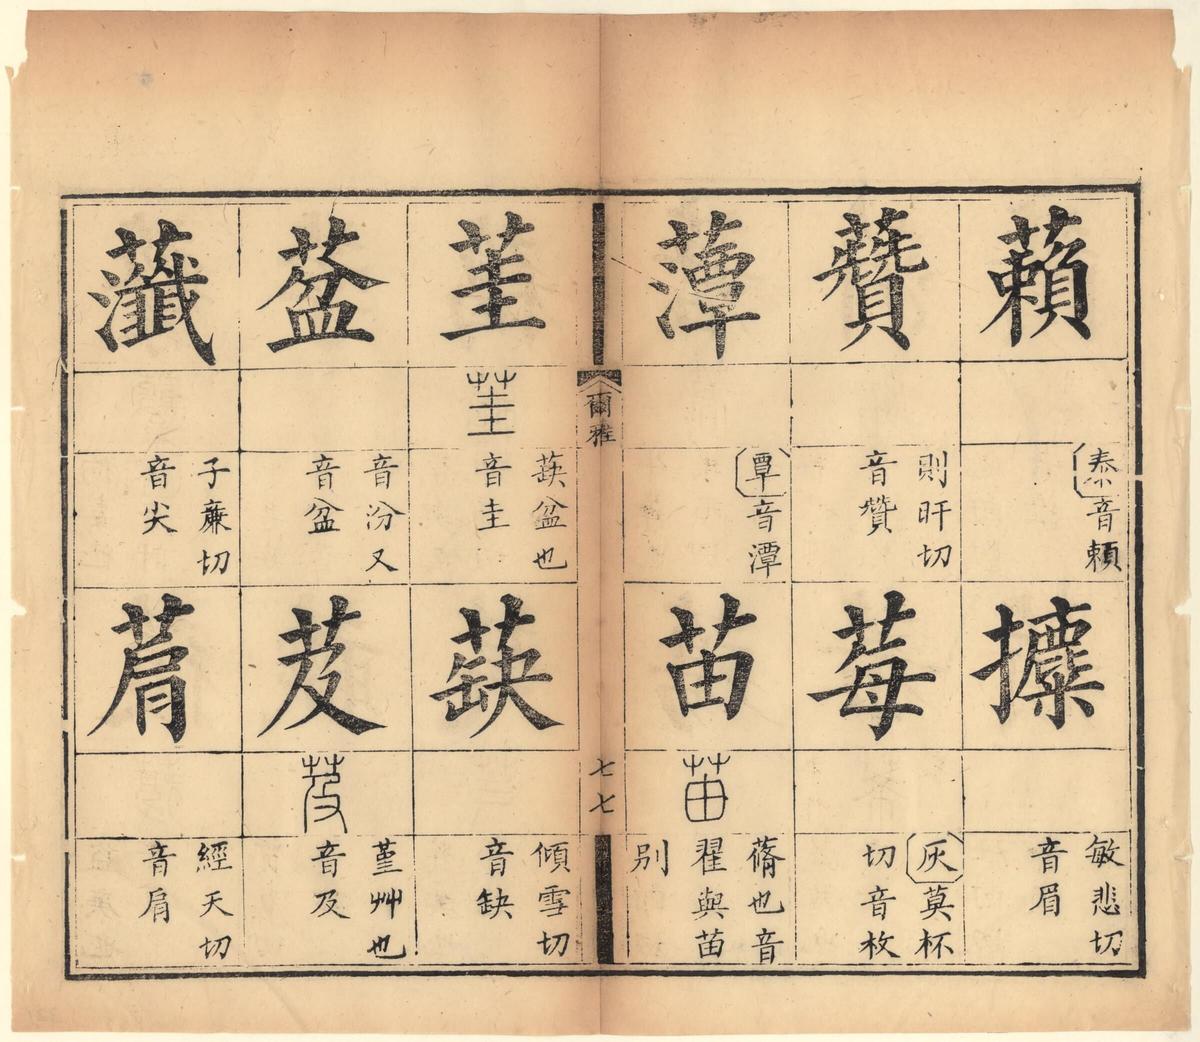 藾
泰音賴
攗
敏悲切
音眉
則旰切
音贊
莓
灰莫杯
切音枚
藫
覃音潭
苖
苖
蓨也音
翟與苗
別
爾雅
七七
茥
茥
蒛葐也
音圭
蒛
傾雪切
音缺
葐
音汾又
音盆
芨
芨
堇艸也
音及
虃
子廉切
音尖
菺
經天切
音肩